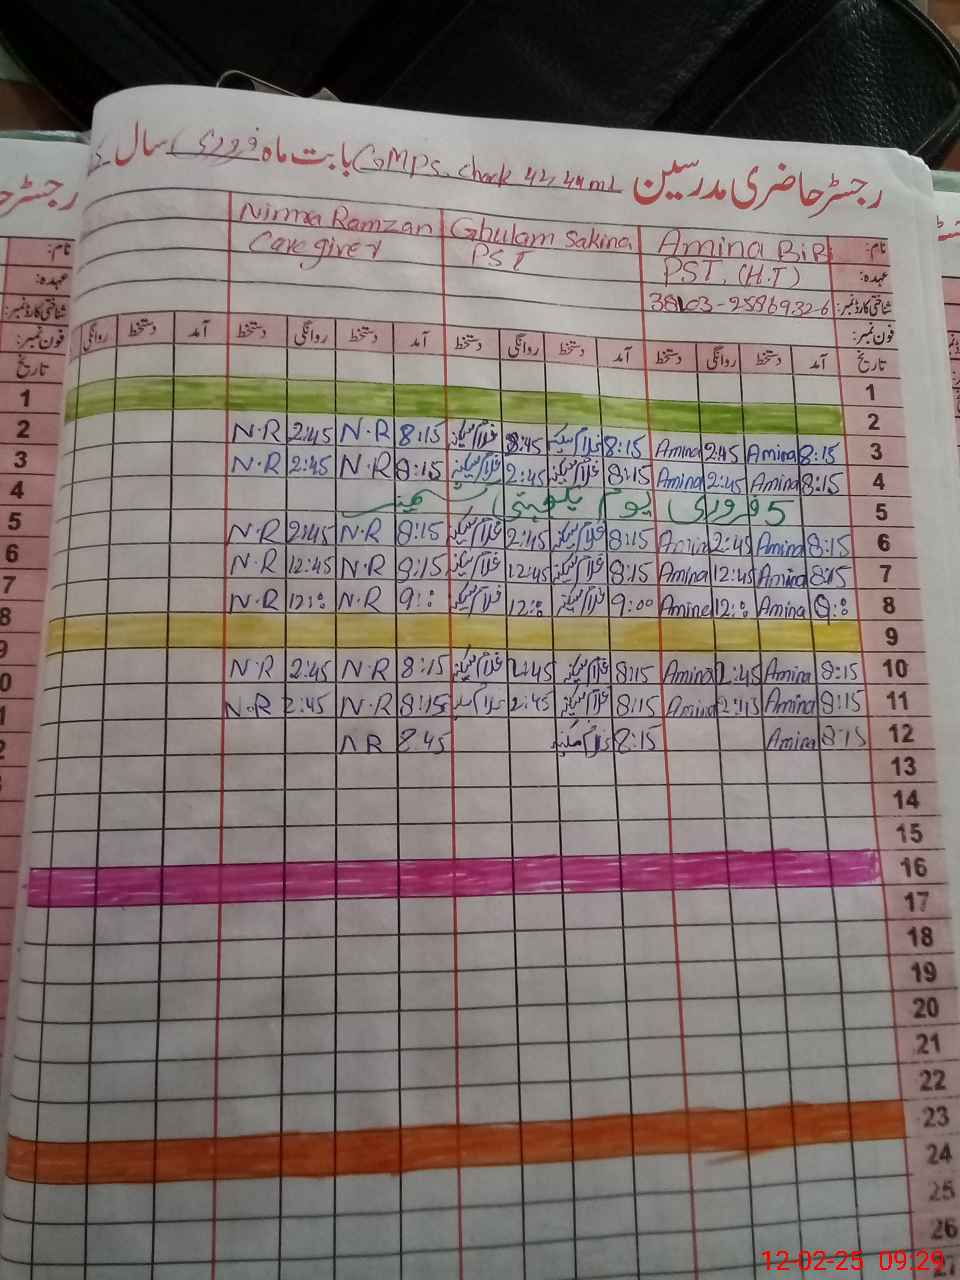 رجسٹر حاضری مدرسین GMPS. chack 42, 44 ML بابت ماہ فروری سال
نام: Amina BiBi Ghulam Sakina Nirma Ramzan
عہدہ: PST. (H.T) PST Care giver
شناختی کارڈ نمبر: 38103-2586932-6
فون نمبر:
تاریخ آمد دستخط روانگی دستخط آمد دستخط روانگی دستخط آمد دستخط روانگی دستخط آمد دستخط روانگی
1
2
3 8:15 Amina 2:45 Amina 8:15 غلام سکینہ 8:45 غلام سکینہ 8:15 N.R 2:45 N.R
4 8:15 Amina 2:45 Amina 8:15 غلام سکینہ 2:45 غلام سکینہ 8:15 N.R 2:45 N.R
5 5 فروری یوم یکجہتی کشمیر
6 8:15 Amina 2:45 Amina 8:15 غلام سکینہ 2:45 غلام سکینہ 8:15 N.R 2:45 N.R
7 8:15 Amina 12:45 Amina 8:15 غلام سکینہ 12:45 غلام سکینہ 8:15 N.R 12:45 N.R
8 9:00 Amina 12:00 Amina 9:00 غلام سکینہ 12:00 غلام سکینہ 9:00 N.R 12:00 N.R
9
10 8:15 Amina 2:45 Amina 8:15 غلام سکینہ 2:45 غلام سکینہ 8:15 N.R 2:45 N.R
11 8:15 Amina 2:45 Amina 8:15 غلام سکینہ 2:45 غلام سکینہ 8:15 N.R 2:45 N.R
12 8:15 Amina 8:15 غلام سکینہ 8:45 N R
13
14
15
16
17
18
19
20
21
22
23
24
25
26
27
12-02-25 09:29